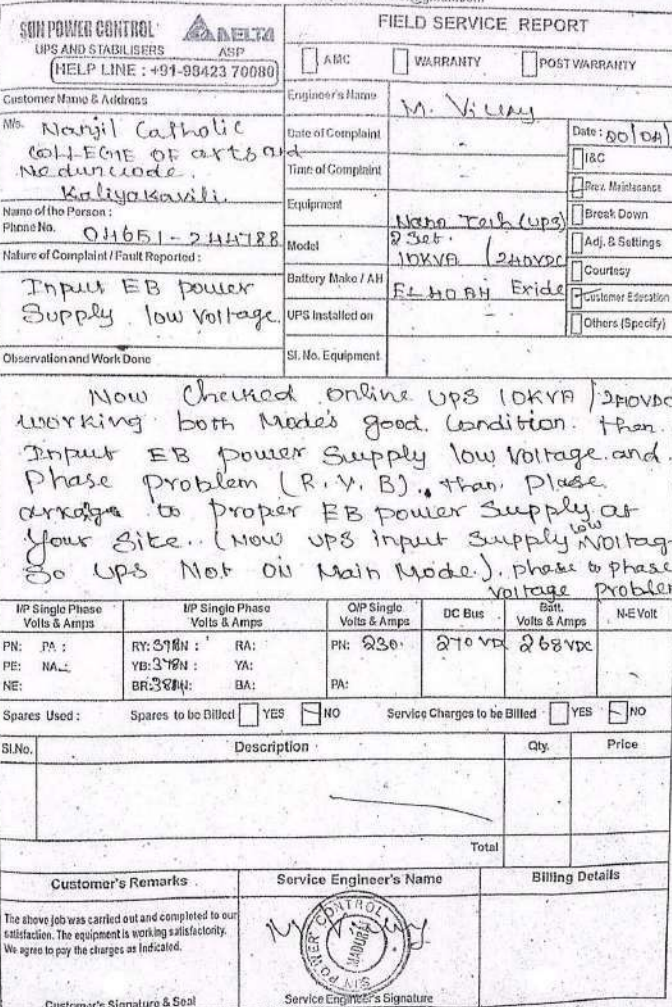 SUN POWER CONTROL
UPS AND STABILISERS
DELTA
ASP
HELP LINE : +91-98423 70080
FIELD SERVICE REPORT
AMC
WARRANTY
POST WARRANTY
Customer Name & Address
M/s. Nanjil Catholic
COLLEGE OF arts and
Nedumcode.
Kaliyakavili.
Name of the Person :
Phone No. 04651-244788
Nature of Complaint / Fault Reported :
Input EB power
Supply low voltage.
Observation and Work Done
Engineer's Name
M. Vijay
Date of Complaint
Time of Complaint
Equipment
Nano Tech (UPS)
Model
2 Set.
10KVA / 240VDC
Battery Make / AH
Exide
UPS Installed on
Sl. No. Equipment
Date :
I&C
Prev. Maintenance
Break Down
Adj. & Settings
Courtesy
Customer Education
Others (Specify)
Now Checked online UPS 10KVA / 240VDC
working both Mode's good. Condition. then.
Input EB power Supply low voltage. and.
Phase problem (R.Y.B). than. Plase
to proper EB power Supply at
Your Site. (Now UPS input Supply low voltag
So UPS Not ON Main Mode.). phase to phase
voltage problem
I/P Single Phase
Volts & Amps
I/P Single Phase
Volts & Amps
O/P Single
Volts & Amps
DC Bus
Batt.
Volts & Amps
N-E Volt
PN: PA :
RY: RA:
PN: 230.
268 VDC
PE: NA
YB: YA:
NE:
BR: BA:
PA:
Spares Used :
Spares to be Billed YES NO
Service Charges to be Billed YES NO
Sl.No.
Description
Qty.
Price
Total
Customer's Remarks
Service Engineer's Name
Billing Details
The above job was carried out and completed to our
satisfaction. The equipment is working satisfactorily.
We agree to pay the charges as indicated.
SUN POWER CONTROL
MADURAI
Customer's Signature & Seal
Service Engineer's Signature